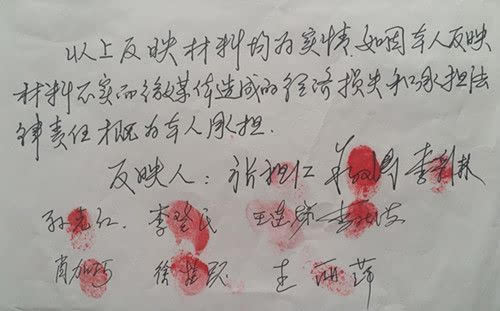 以上反映材料均为实情,如因本人反映
材料不实而给媒体造成的经济损失和承担法
律责任概为本人承担.
反映人:张祖仁 李
孙光仁. 李登民 王连
肖加 徐 王丽萍